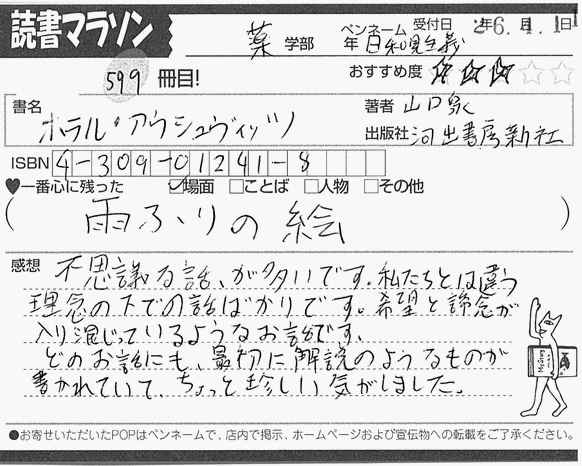 読書マラソン
薬 学部 年 ペンネーム 日和見主義 受付日 26年4月1日
599 冊目! おすすめ度 ☆☆☆☆☆
書名 ホラル・アウシュヴィッツ
著者 山口泉
出版社 河出書房新社
ISBN 4-309-01241-8
♥一番心に残った ☑場面 □ことば □人物 □その他
(雨ふりの絵)
感想 不思議な話、が多いです。私たちとは違う
理念の下での話ばかりです。希望と諦念が
入り混じっているようなお話です。
どのお話にも、最初に解説のようなものが
書かれていて、ちょっと珍しい気がしました。
●お寄せいただいたPOPはペンネームで、店内で掲示、ホームページおよび宣伝物への転載をご了承ください。